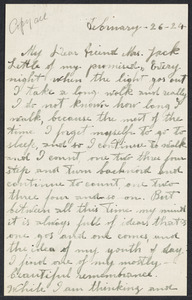 Copy all
February-26-24
My Dear friend Mrs. Jack
little of my promised, Every
night when the light goes out
I take a long walk and really
I do not known how long I
walk, because the most of the
time I forget myself to go to
sleep, and so I continue to walk
and I count one two three four
step and turn backword and
continue to count one two
three four and so on. But
between all this time my mind
it is always full of ideas that
one gos and one comes and
the idea of my youth of day
I find one of my mostly
beautiful remembrance.
While I am thinking and